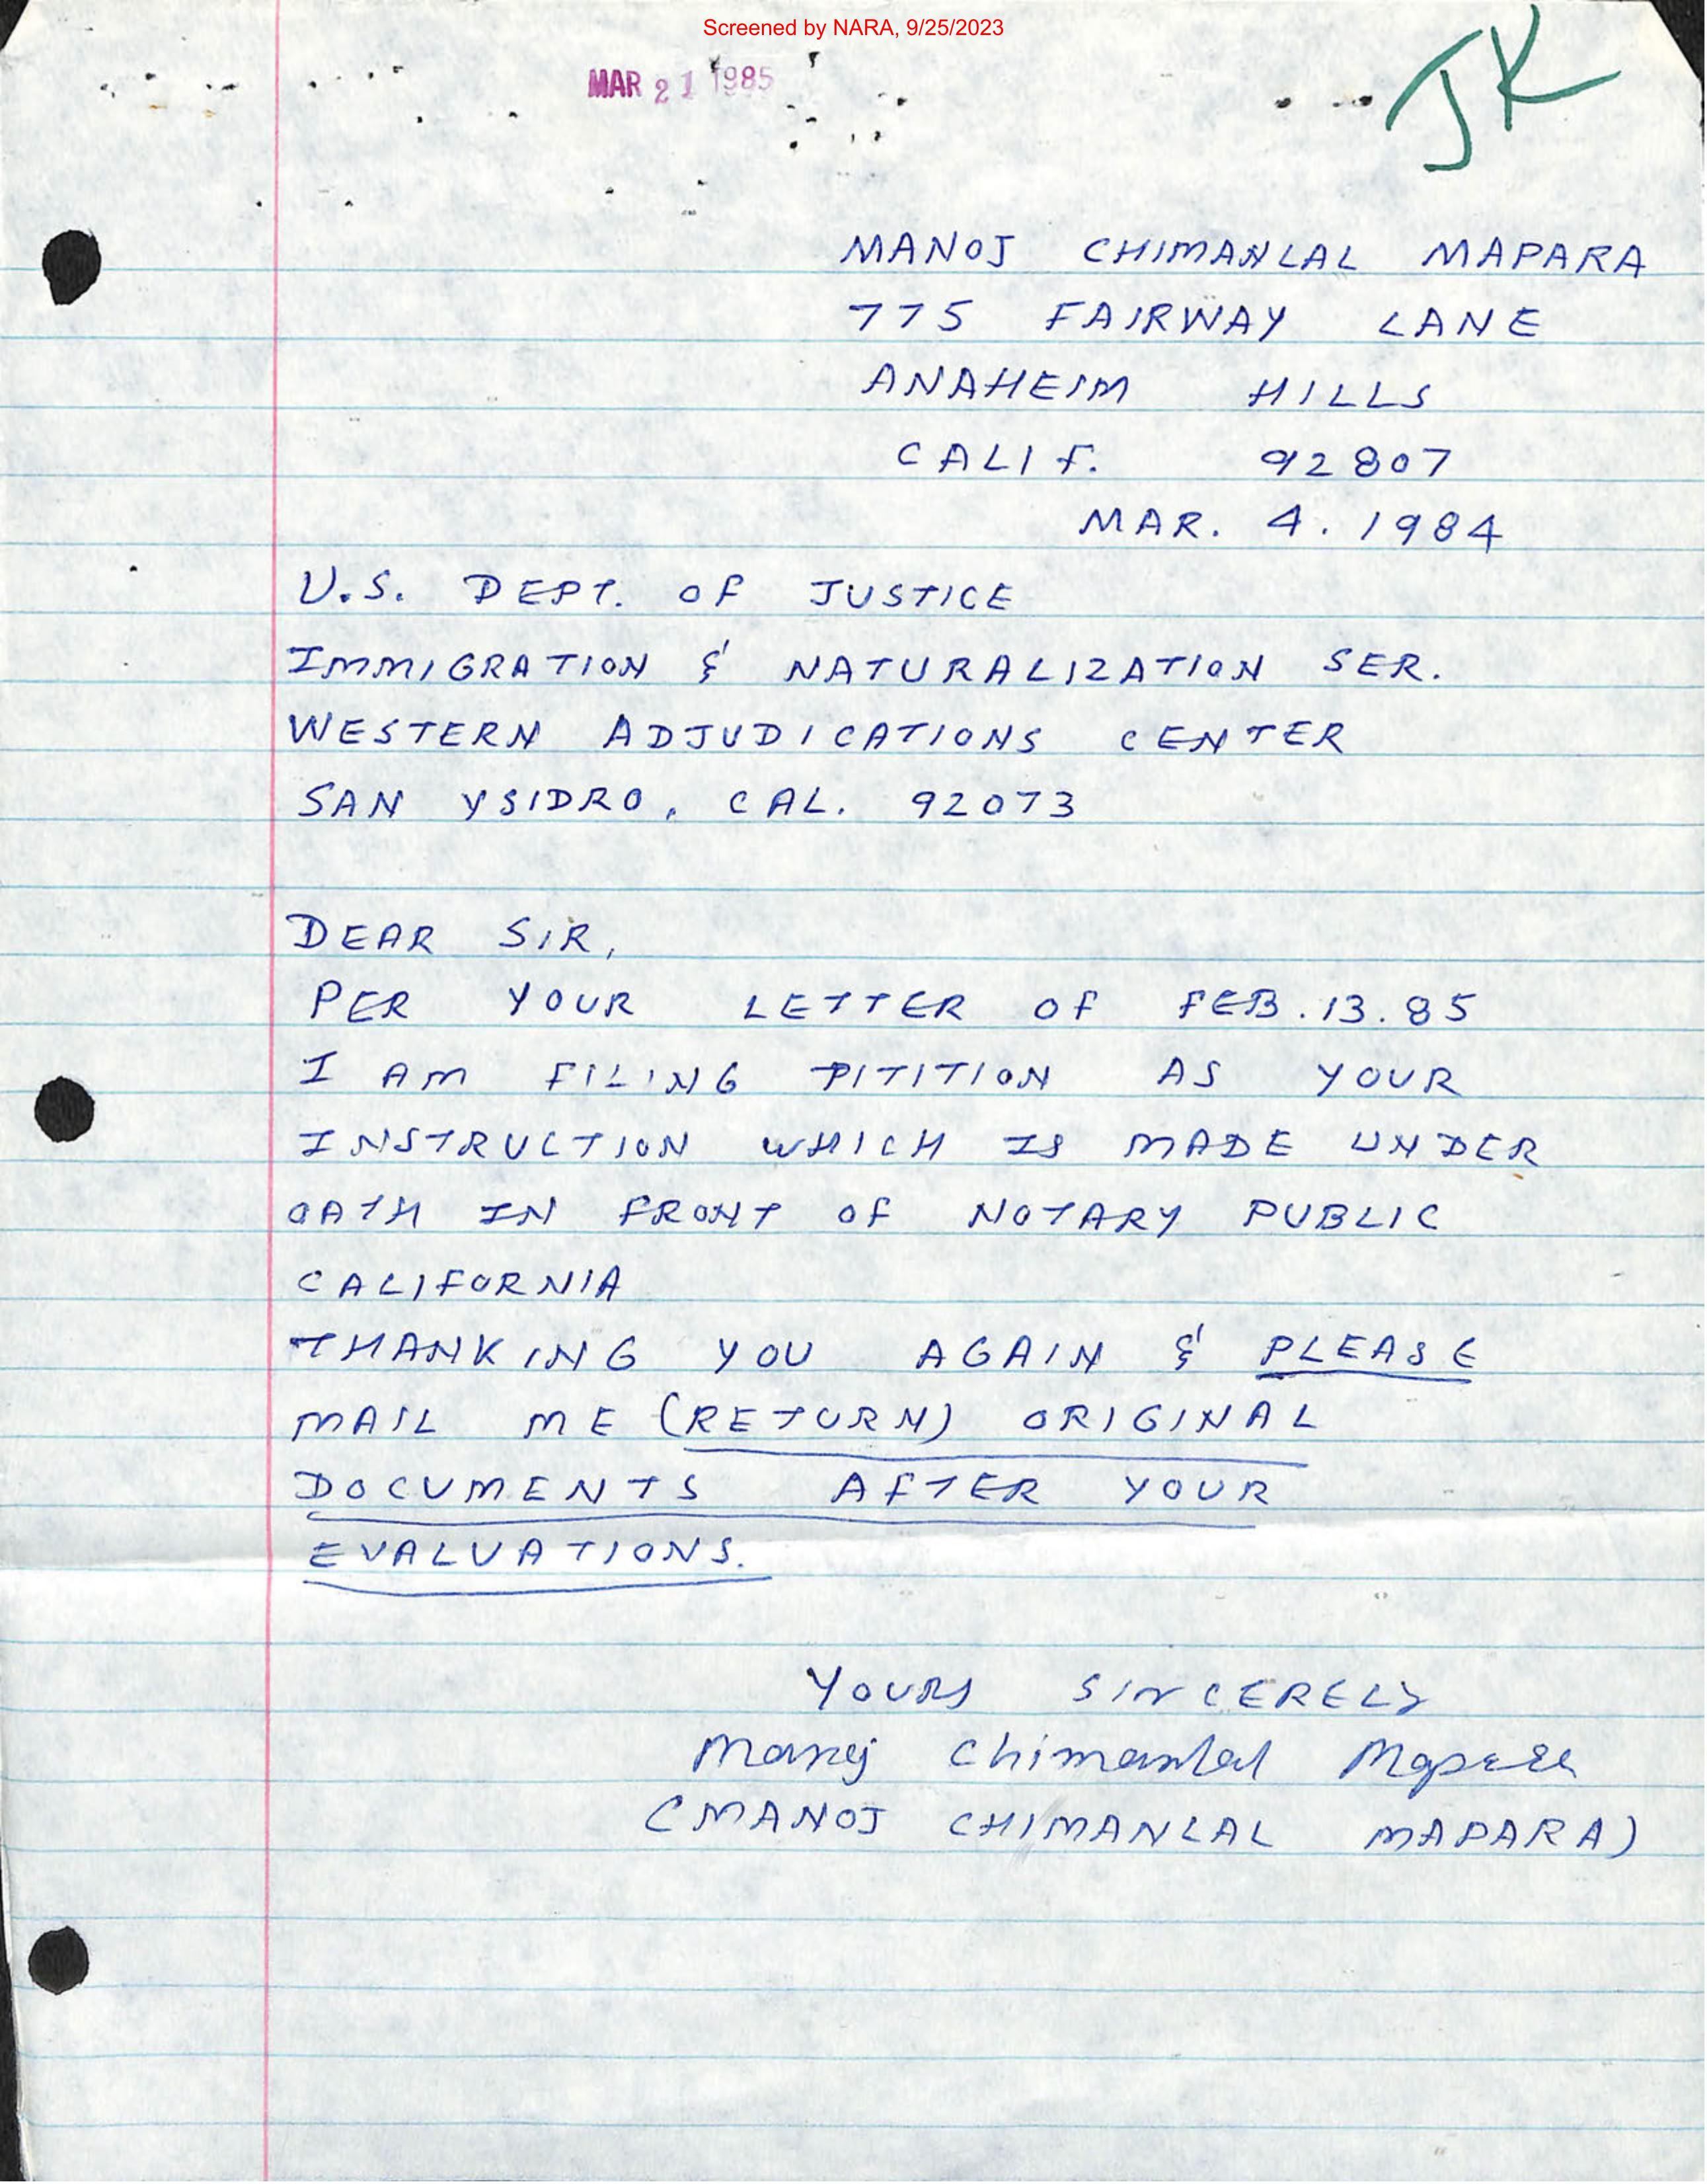 Screened by NARA, 9/25/2023
MAR 21 1985
JK
MANOJ CHIMANLAL MAPARA
775 FAIRWAY LANE
ANAHEIM HILLS
CALIF. 92807
MAR. 4. 1984
U.S. DEPT. OF JUSTICE
IMMIGRATION & NATURALIZATION SER.
WESTERN ADJUDICATIONS CENTER
SAN YSIDRO, CAL. 92073
DEAR SIR,
PER YOUR LETTER OF FEB. 13. 85
I AM FILING PITITION AS YOUR
INSTRUCTION WHICH IS MADE UNDER
OATH IN FRONT OF NOTARY PUBLIC
CALIFORNIA
THANKING YOU AGAIN & PLEASE
MAIL ME (RETURN) ORIGINAL
DOCUMENTS AFTER YOUR
EVALUATIONS.
YOURS SINCERELY
Manoj Chimanlal Mapara
(MANOJ CHIMANLAL MAPARA)